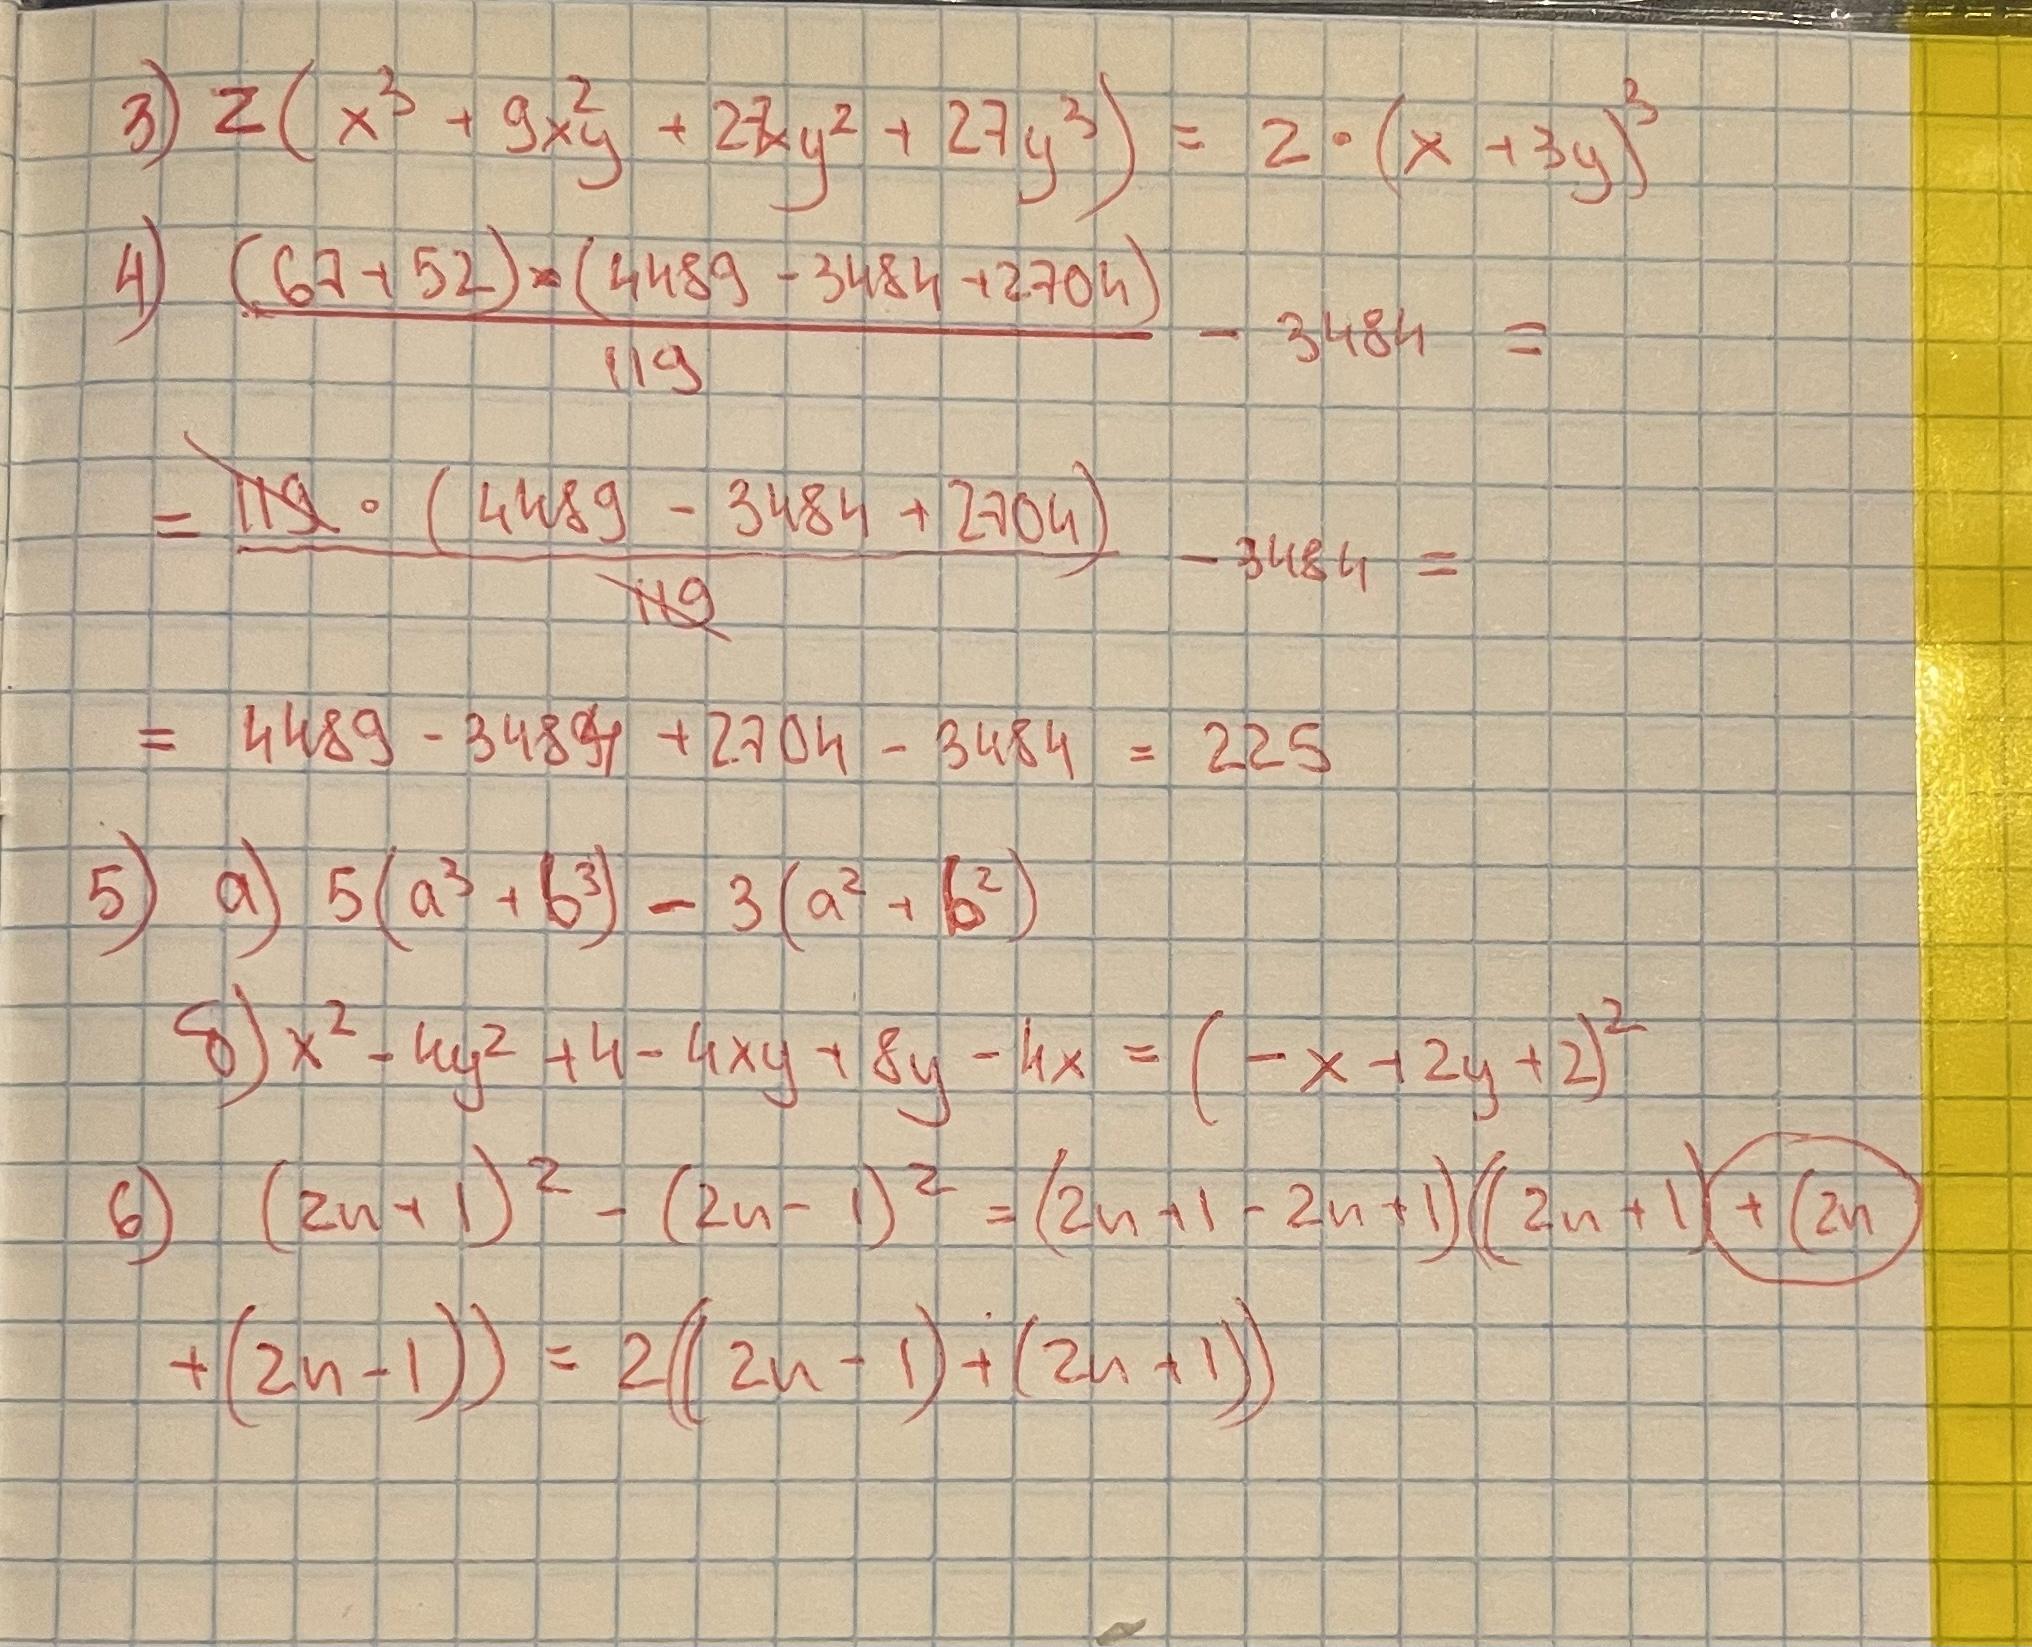 3) 2(x³ + 9x²y + 27xy² + 27y³) = 2·(x + 3y)³
4) (67+52)·(4489 - 3484 + 2704)
119
- 3484 =
= 119 · (4489 - 3484 + 2704)
119
- 3484 =
= 4489 - 3484 + 2704 - 3484 = 225
5) a) 5(a³ + b³) - 3(a² + b²)
б) x² - 4y² + 4 - 4xy + 8y - 4x = (-x + 2y + 2)²
6) (2n+1)² - (2n-1)² = (2n+1-2n+1)((2n+1) + (2n
+(2n-1)) = 2((2n-1)+(2n+1))